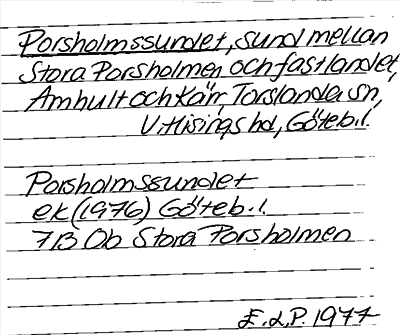 Porsholmssundet, sund mellan
Stora Porsholmen och fastlandet,
Amhult och Kärr, Torslanda sn,
V. Hisings hd, Göteb. l.
Porsholmssundet
ek (1976) Göteb. l.
7B 0b Stora Porsholmen
E.d.P. 1977